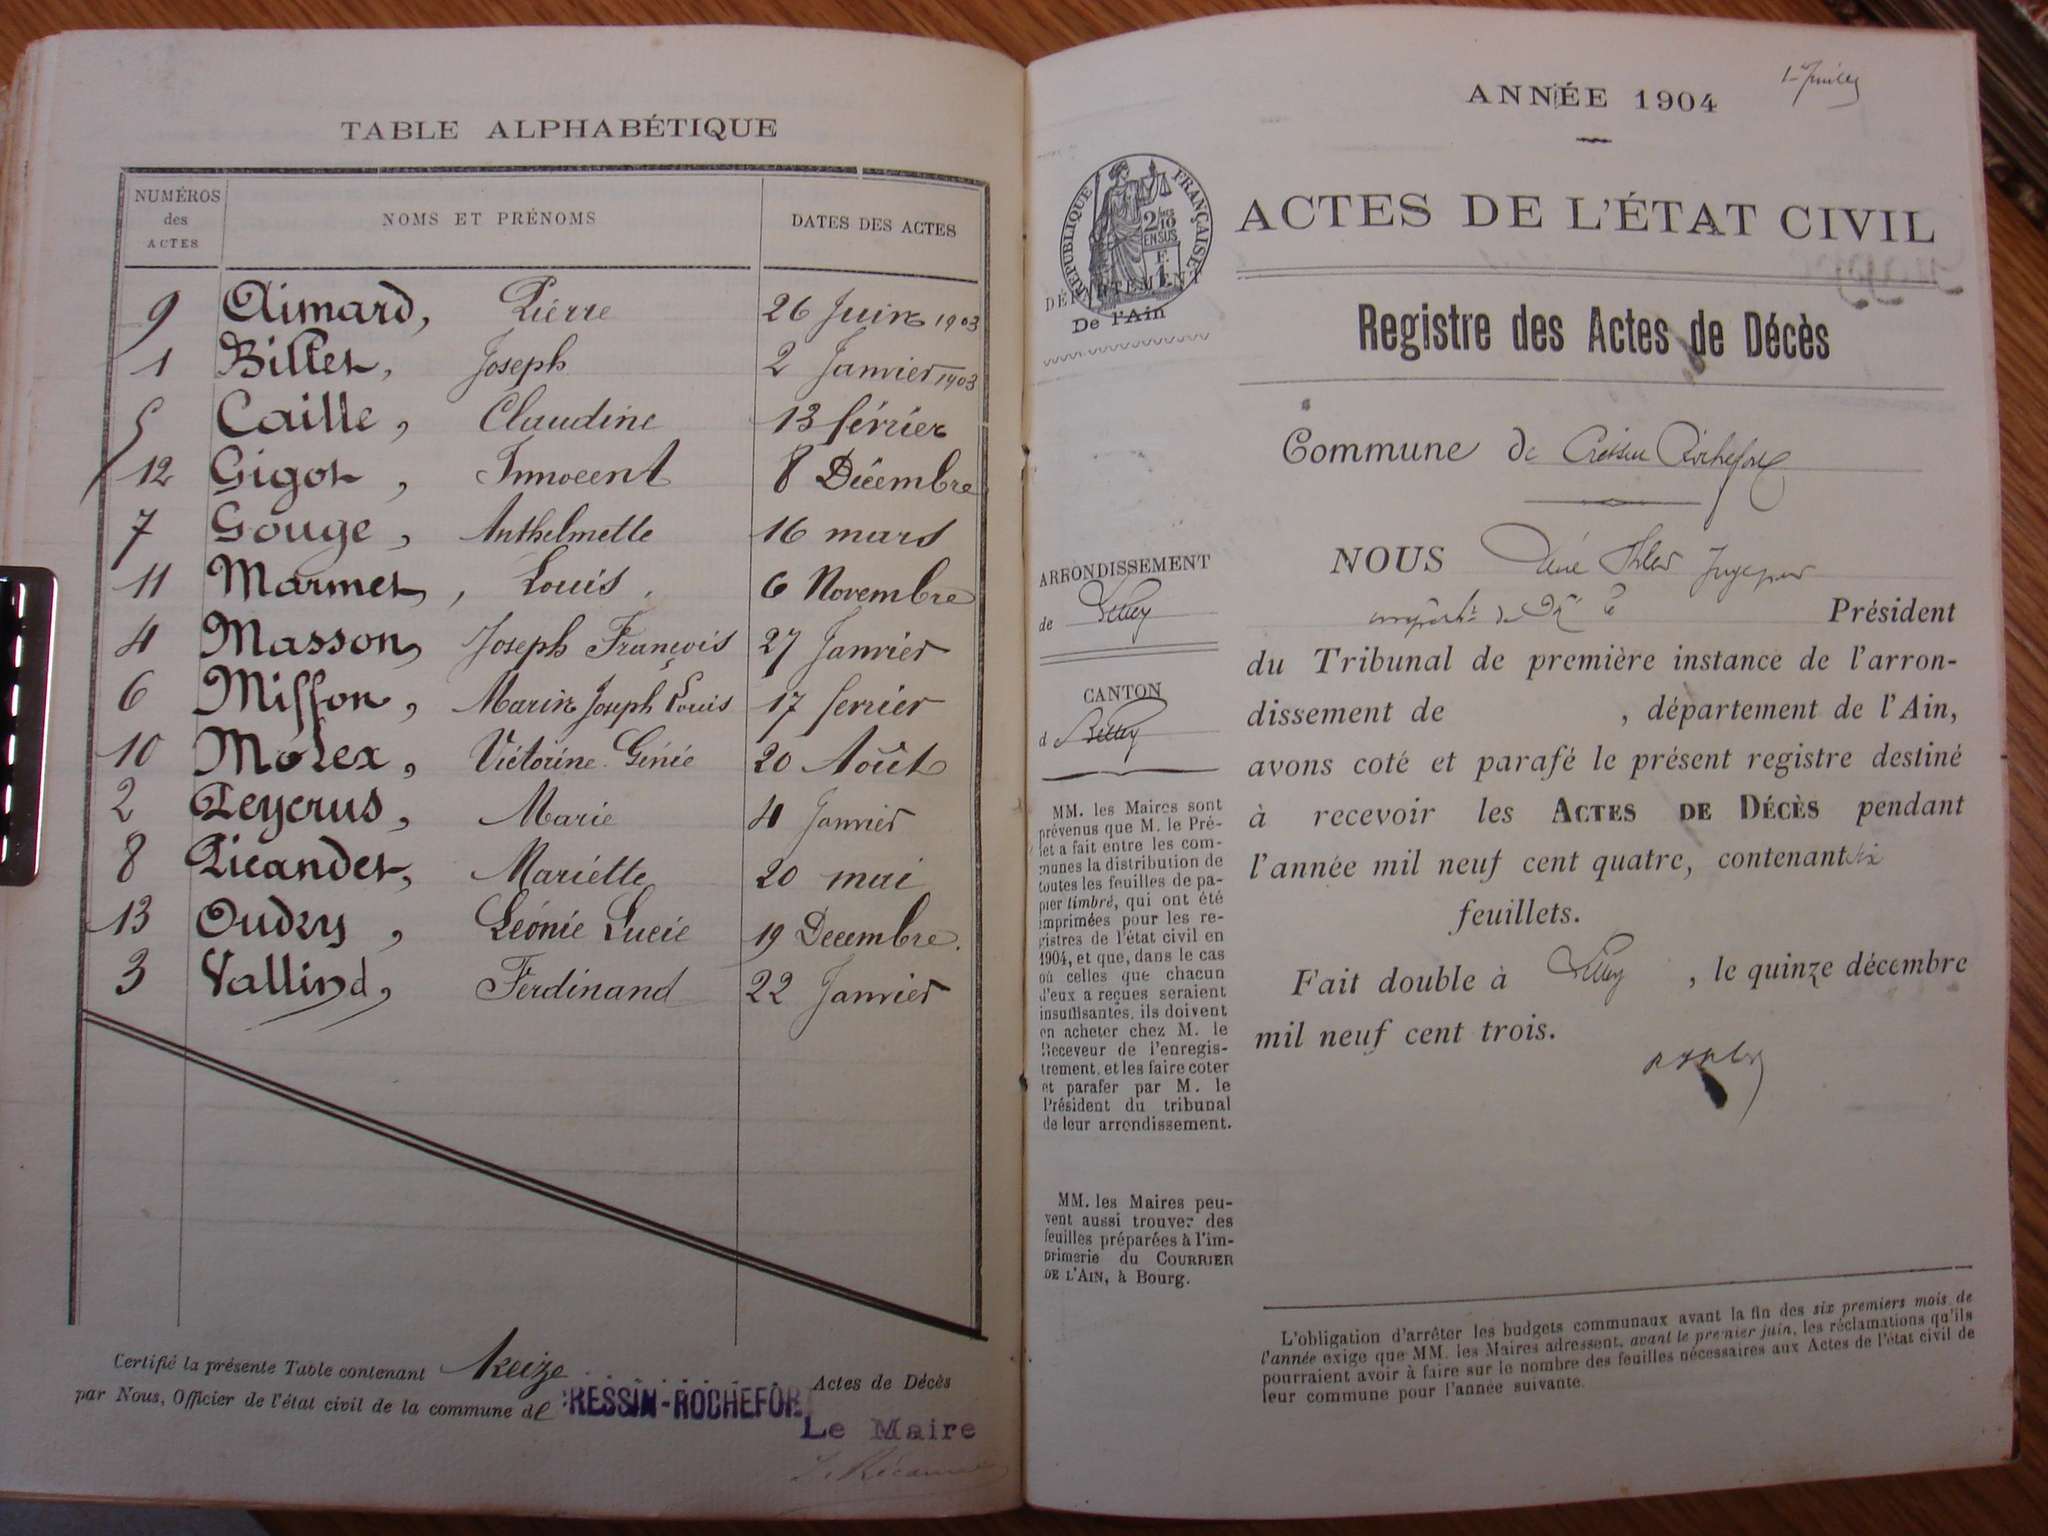 TABLE ALPHABÉTIQUE
NUMÉROS des ACTES
NOMS ET PRÉNOMS
DATES DES ACTES
9 Aimard, Pierre 26 Juin 1903
1 Billet, Joseph 2 Janvier 1903
5 Caille, Claudine 13 février
12 Gigot, Innocent 8 Décembre
7 Gouge, Anthelmette 16 mars
11 Marmet, Louis 6 Novembre
4 Masson, Joseph François 27 Janvier
6 Miffon, Marin Joseph Louis 17 fevrier
10 Molex, Victorine Génie 20 Août
2 Peycrus, Marie 4 Janvier
8 Picandet, Mariette 20 mai
13 Oudry, Léonie Lucie 19 Decembre.
3 Vallind, Ferdinand 22 Janvier
Certifié la présente Table contenant treize Actes de Décès
par Nous, Officier de l'état civil de la commune de RESSIN-ROCHEFOR
Le Maire
ANNÉE 1904
RÉPUBLIQUE FRANÇAISE
2/10 EN SUS
F. 1
ACTES DE L'ÉTAT CIVIL
DÉPARTEMENT
De l'Ain
Registre des Actes de Décès
Commune de Cressin Rochefort
ARRONDISSEMENT
de Belley
CANTON
d Belley
MM. les Maires sont
prévenus que M. le Pré-
fet a fait entre les com-
munes la distribution de
toutes les feuilles de pa-
pier timbré, qui ont été
imprimées pour les re-
gistres de l'état civil en
1904, et que, dans le cas
où celles que chacun
d'eux a reçues seraient
insuffisantes, ils doivent
en acheter chez M. le
Receveur de l'enregis-
trement, et les faire coter
et parafer par M. le
Président du tribunal
de leur arrondissement.
MM. les Maires peu-
vent aussi trouver des
feuilles préparées à l'im-
primerie du COURRIER
DE L'AIN, à Bourg.
NOUS
Président
du Tribunal de première instance de l'arron-
dissement de , département de l'Ain,
avons coté et parafé le présent registre destiné
à recevoir les ACTES DE DÉCÈS pendant
l'année mil neuf cent quatre, contenant six
feuillets.
Fait double à Belley, le quinze décembre
mil neuf cent trois.
L'obligation d'arrêter les budgets communaux avant la fin des six premiers mois de
l'année exige que MM. les Maires adressent, avant le premier juin, les réclamations qu'ils
pourraient avoir à faire sur le nombre des feuilles nécessaires aux Actes de l'état civil de
leur commune pour l'année suivante.